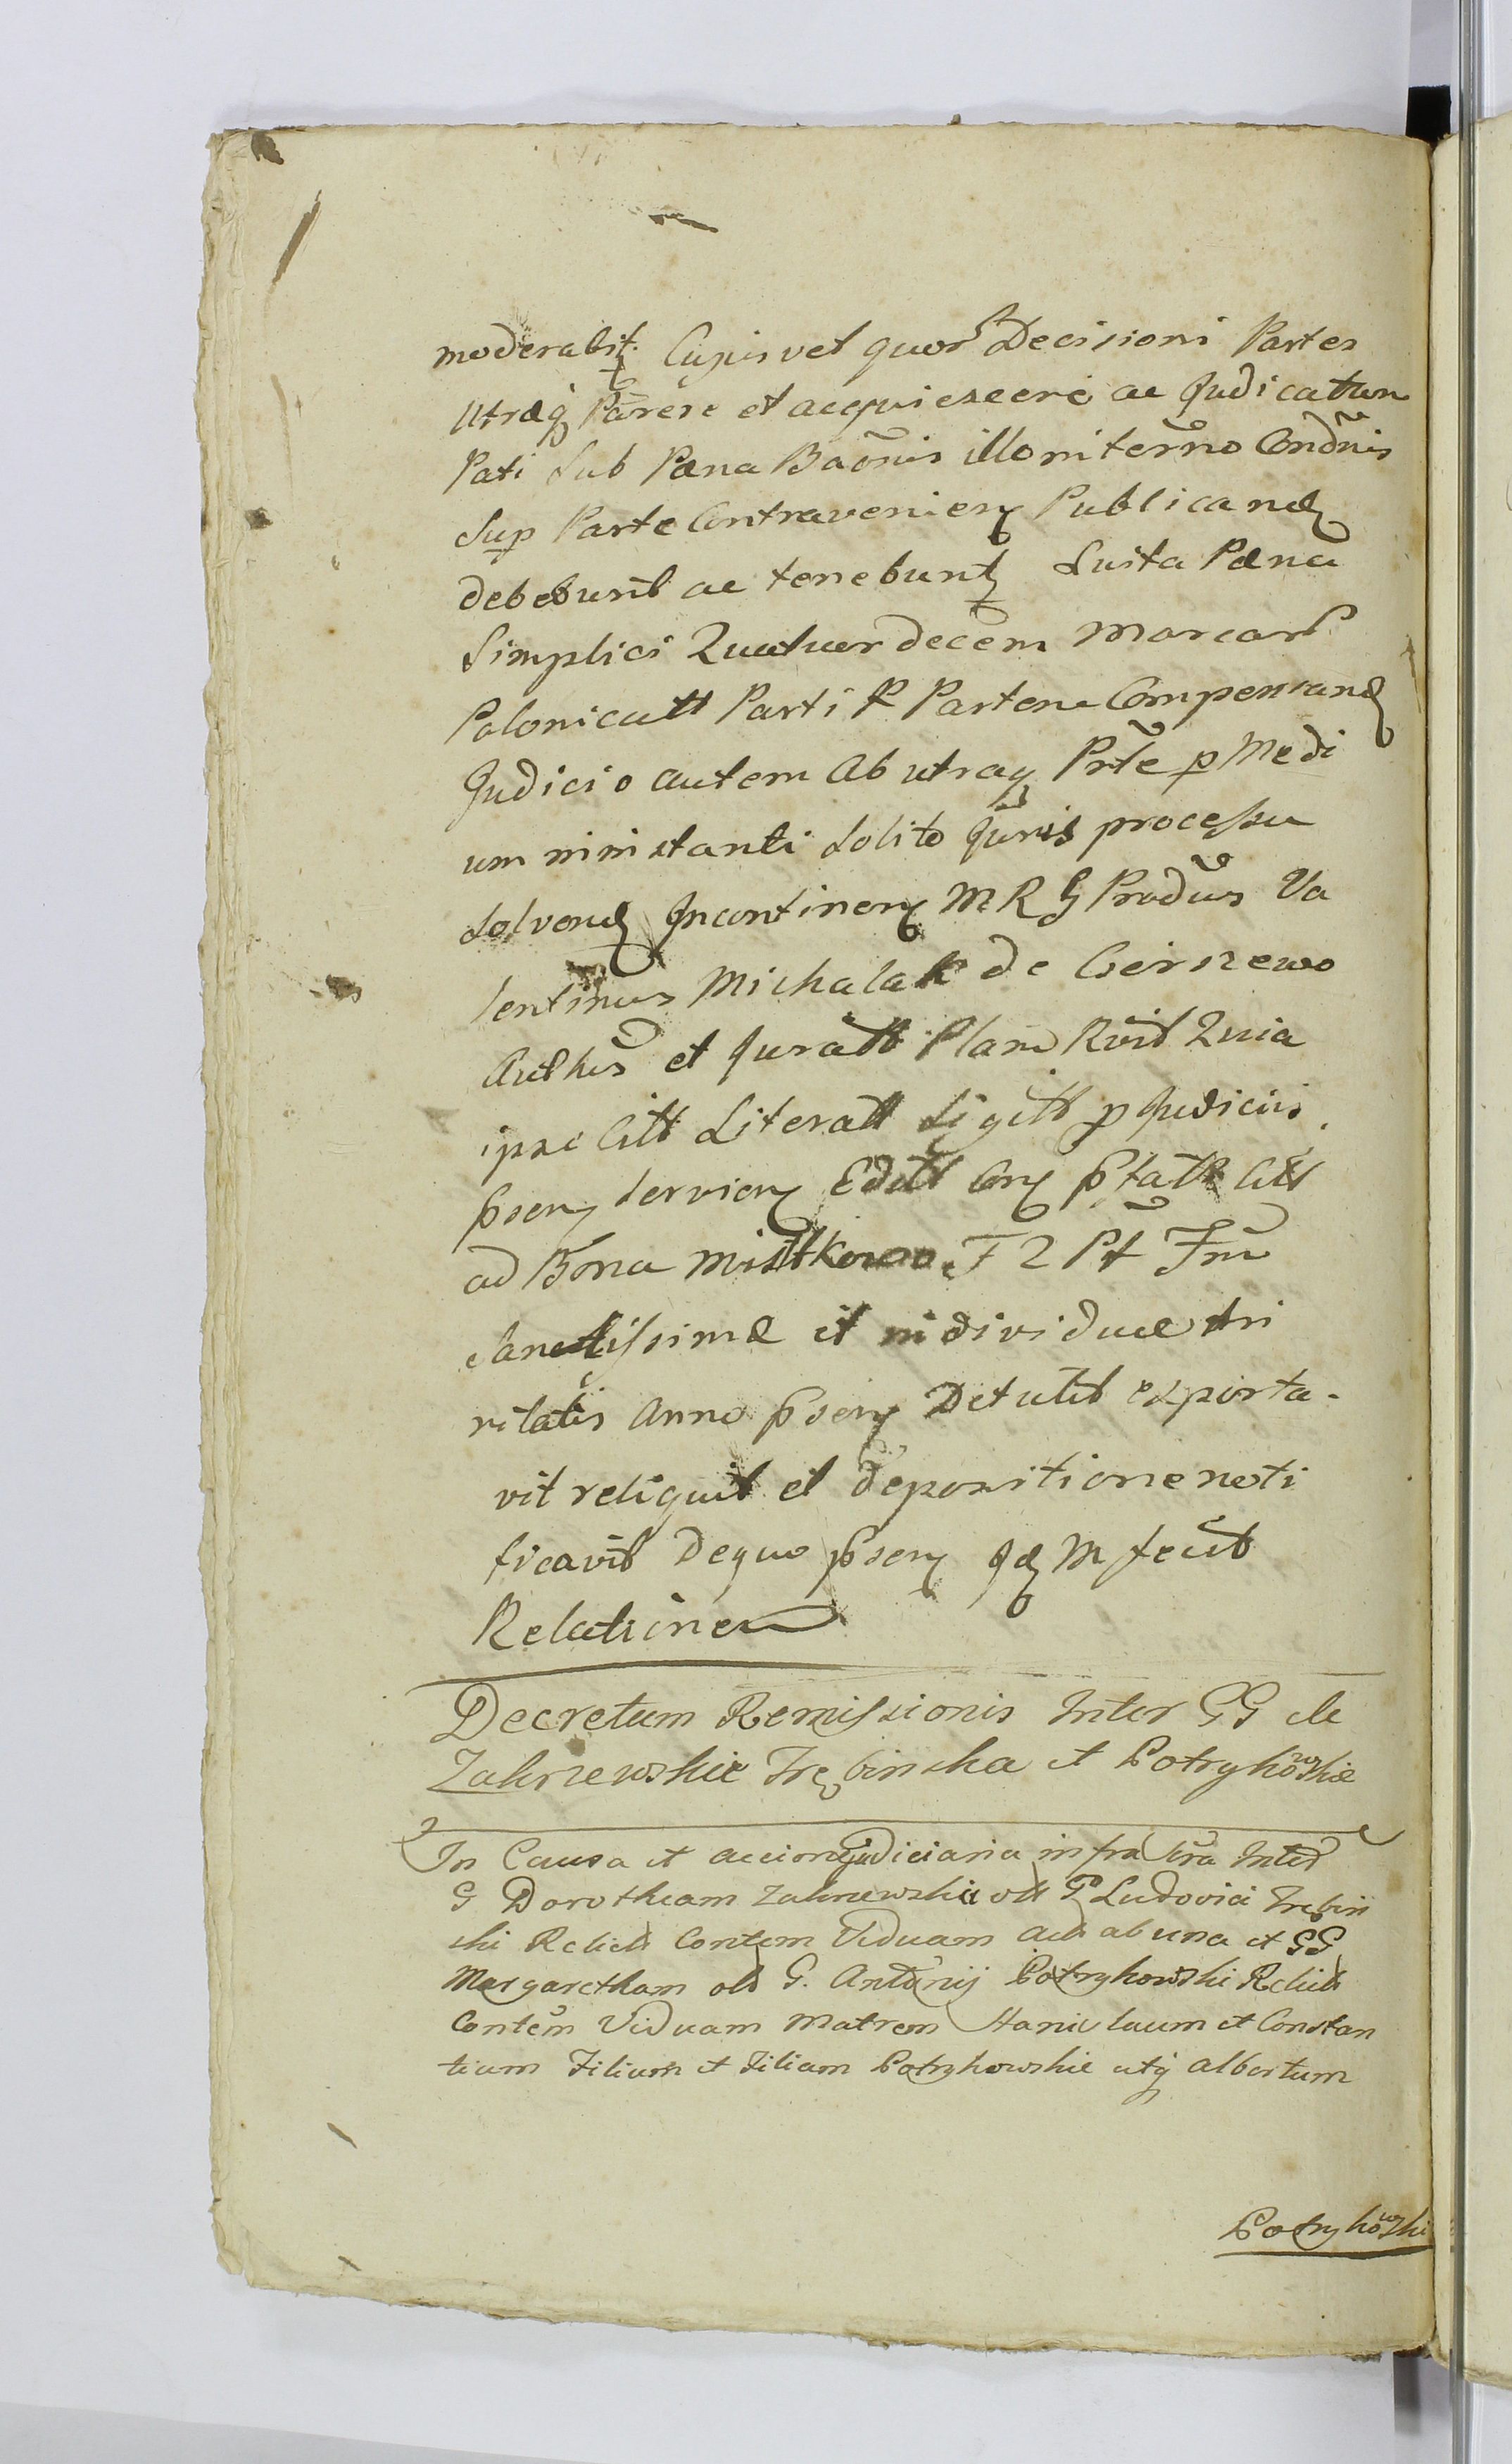 moderabit. Cujus vel quor Decisioni Partes
Utræq Parere et acquiescere ac Judicatum
Pati Sub Pæna Baōnis illo in termo Condnis
Sup Parte Contravenien Publicand
debebunt ac tenebunt Luita Pæna
Simplici Quatuordecem Marcar
Polonicatt Parti P Partem Compensand
Judicio autem Ab utraq Prte p Medi
um ninstanti Solito Juris processu
Solvend Incontinen M R G Produs Va
lentinus Michalak de Czerszewo
Authus et Juratt Plam Rvit Quia
ipse Citt Literatt Sigitt p Judiciis
psen Servien Editt Con pfatt Citt
ad Bona Mistkowo F 2 Pt Fm
Sanctissimæ et individuæ tri
nitatis Anno psen Detulit exporta-
vit reliquit et depositione noti
ficavit De quo psen Id M fecit
Relationem
Decretum Remissionis Inter GG de
Zakrzewskie Trębinska et Potrykowskie
In Causa et accione judiciaria infra scra Inter
G Dorotheam Zakrzewskie olt G Ludovici Trębin
ski Relict Contem Viduam act ab una et GG
Margaretham olt G. Antonij Potrykowski Relict
Contem Viduam Matrem Stanislaum et Constan
tiam Filium et Filiam Potrykowskie atq Albertum
Potrykowski